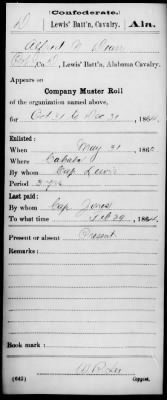 (Confederate.)
D Lewis' Batt'n, Cavalry. Ala.
Alfred
Co. D, Lewis' Batt'n, Alabama Cavalry.
Appears on
Company Muster Roll
of the organization named above,
for Oct 31 to Dec 31, 1864.
Enlisted:
When May 31, 186
Where Cahaba
By whom Cap Lewis
Period 3 yrs
Last paid:
By whom Cap Jones
To what time Feb 29, 1864.
Present or absent Present
Remarks:
Book mark:
(642) Copyist.